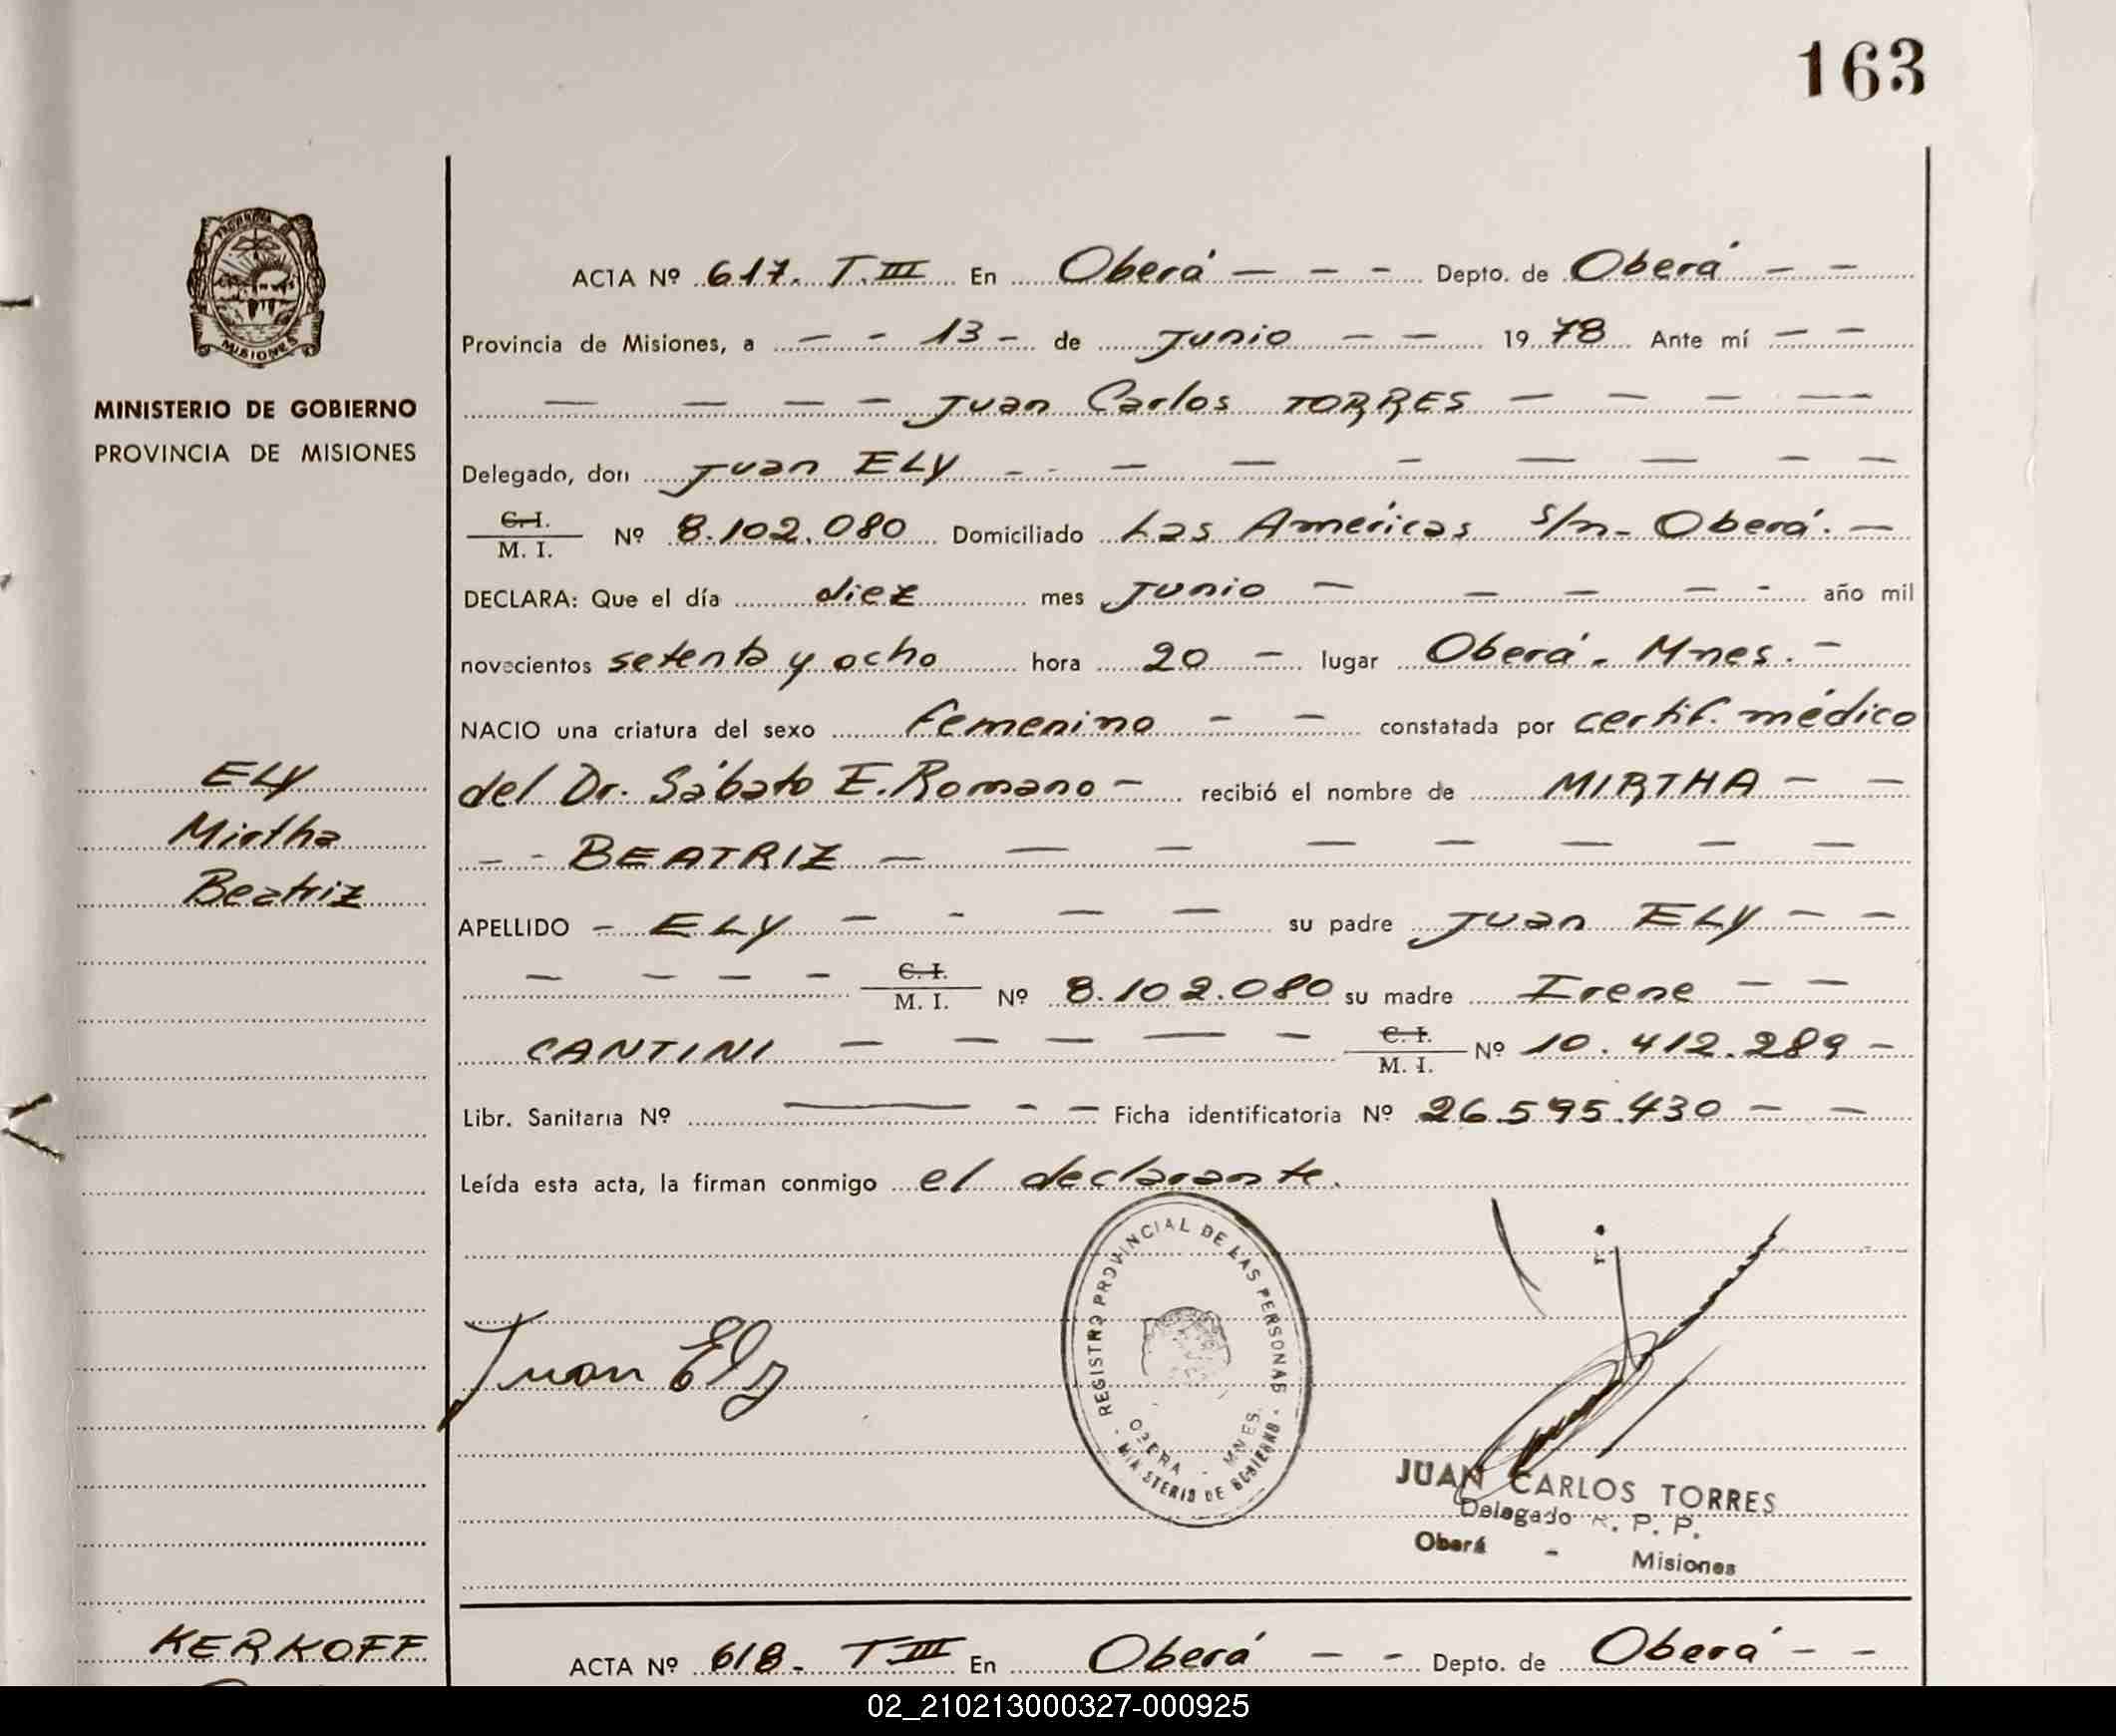 163
PROVINCIA DE
MISIONES
MINISTERIO DE GOBIERNO
PROVINCIA DE MISIONES
ELY
Mirtha
Beatriz
ACTA Nº 617. T.III En Oberá — - - - Depto. de Oberá - -
Provincia de Misiones, a - - 13 - de Junio - - 1978 Ante mí - -
— — — - Juan Carlos TORRES - — - — ---
Delegado, don Juan ELY - - — — - — — - —
C.I. / M. I. Nº 8.102.080 Domiciliado Las Américas s/n- Oberá. —
DECLARA: Que el día diez mes Junio - — — - - año mil
novecientos setenta y ocho hora 20 - lugar Oberá - Mnes. -
NACIO una criatura del sexo femenino - - constatada por certif. médico
del Dr. Sábato E. Romano - recibió el nombre de MIRTHA - -
- - BEATRIZ — — - — - — - —
APELLIDO - ELY — - — — su padre Juan ELY - -
- - - - C.I. / M. I. Nº 8.102.080 su madre Irene - -
CANTINI — — — — - C.I. / M. I. Nº 10.412.289 -
Libr. Sanitaria Nº ——— - - Ficha identificatoria Nº 26.595.430 - -
Leída esta acta, la firman conmigo el declarante.
Juan Ely
REGISTRO PROVINCIAL DE LAS PERSONAS
- MINISTERIO DE GOBIERNO -
OBERA - MNES.
JUAN CARLOS TORRES
Delegado R. P. P.
Oberá - Misiones
KERKOFF
ACTA Nº 618- T III En Oberá - - Depto. de Oberá - -
02_210213000327-000925